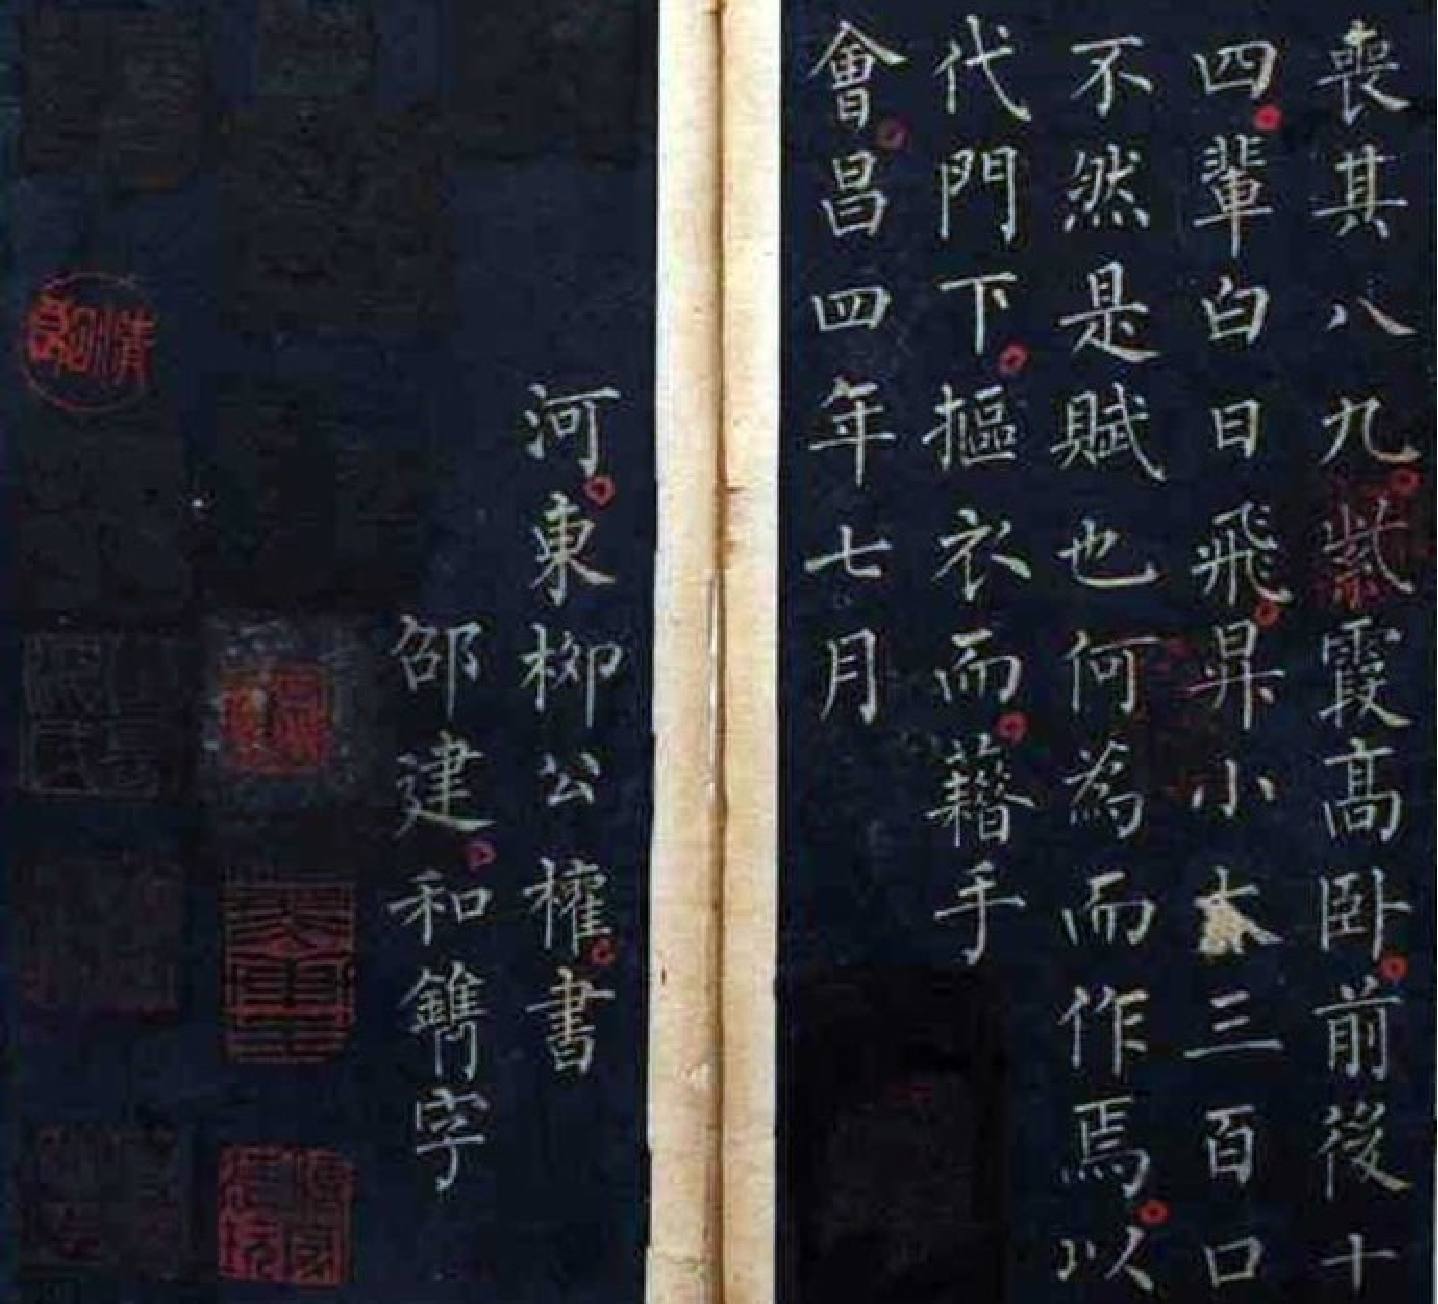 喪其八九紫霞髙卧前後十
四輩白日飛昇小大三百口
不然是賦也何為而作焉以
代門下摳衣而藉手
會昌四年七月
河東柳公權書
邵建和鐫字